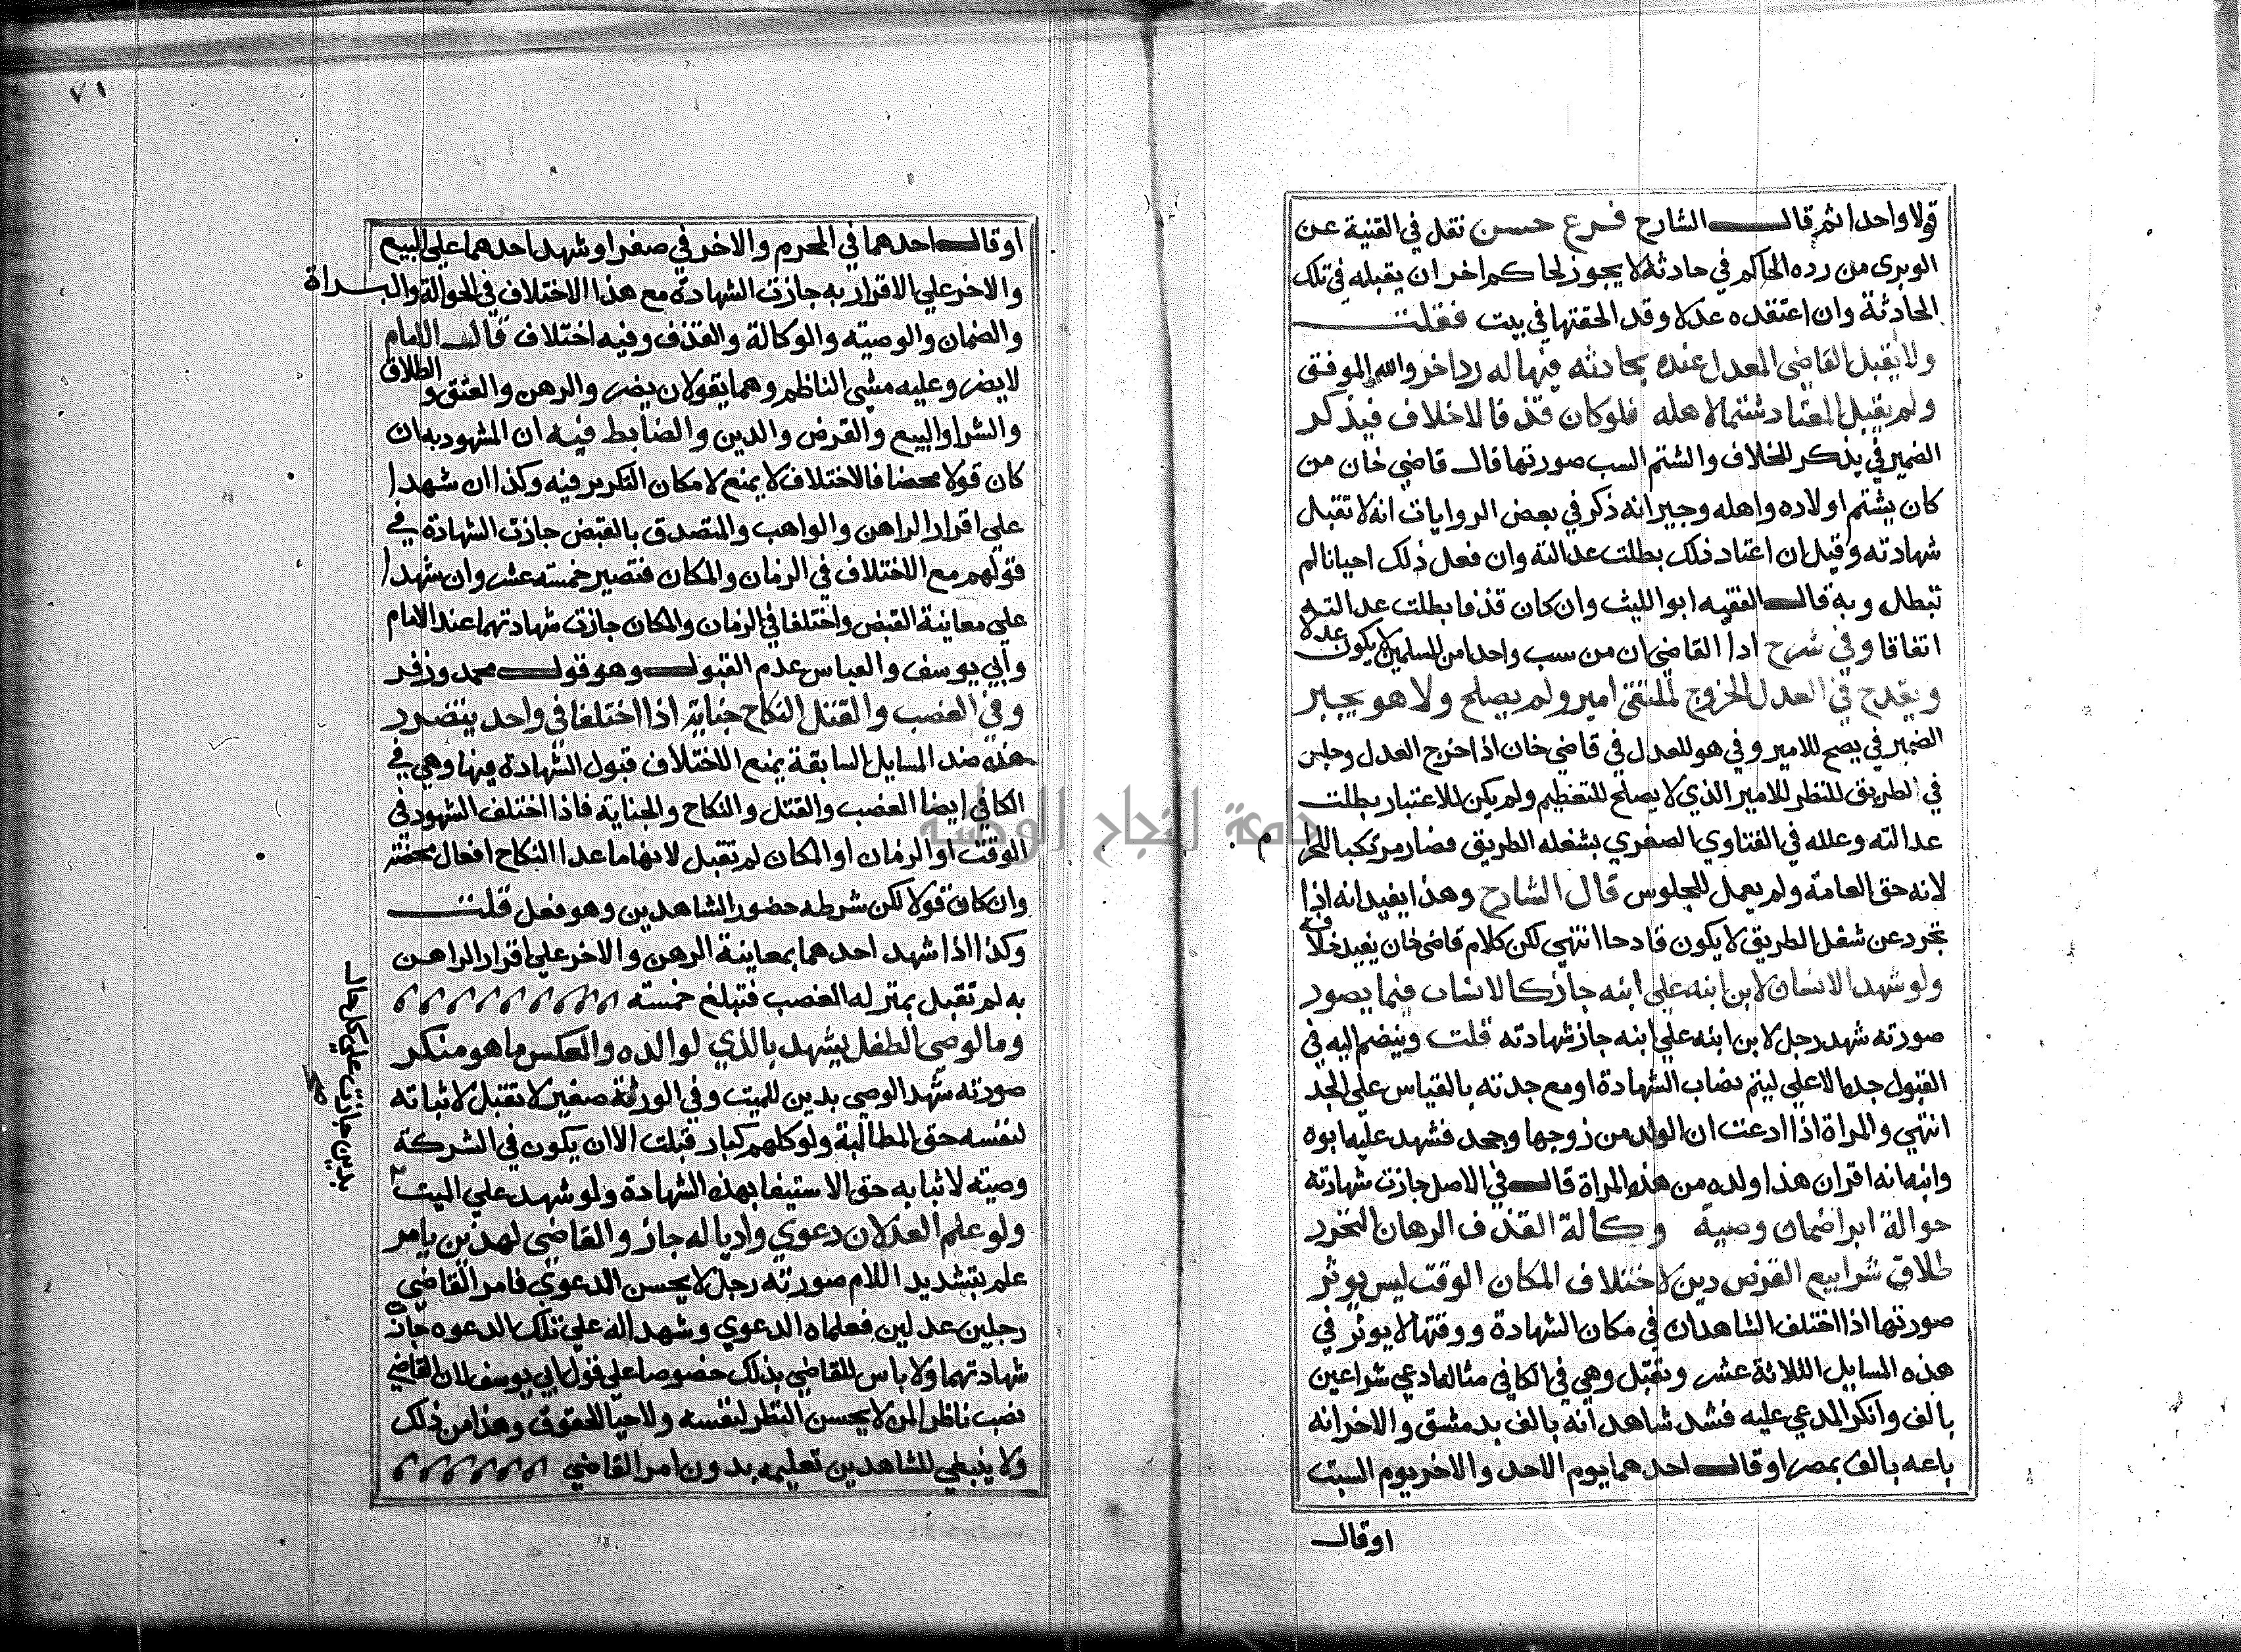 قولا واحدا ثم قال الشارح فرع حسن نقل في القنية عن
الوبرى من رده الحاكم في حادثة لا يجوز لحاكم اخر ان يقبله في تلك
الحادثة وان اعتقده عدلا وقد الحقتها في بيت فقلت
ولا يقبل القاضي المعدل عنده بحادثه فيها له رد اخر والله الموفق
ولم يقبل المعتاد شتما لاهله فلو كان قذفا لا خلاف فيذكر
الضمير في يذكر للخلاف والشتم السب صورتها قال قاضي خان من
كان يشتم اولاده واهله وجيرانه ذكر في بعض الروايات انه لا تقبل
شهادته وقيل ان اعتاد ذلك بطلت عدالته وان فعل ذلك احيانا لم
تبطل وبه قال الفقيه ابو الليث وان كان قذفا بطلت عدالته
اتفاقا وفي شرح ادا القاضي ان من سب واحدا من المسلمين لا يكون عدلا
ويقدح في العدل الخروج لملتقى امير ولم يصلح ولا هو يجبر
الضمير في يصح للامير وفي هو للعدل في قاضي خان اذا خرج العدل وجلس
في الطريق للنظر للامير الذي لا يصلح للتعظيم ولم يكن للاعتبار بطلت
عدالته وعلله في الفتاوي الصغري بشغله الطريق فصار مرتكبا للحرام
لانه حق العامة ولم يعمل للجلوس قال الشارح وهذا يفيد انه اذا
تجرد عن شغل الطريق لا يكون قادحا انتهي لكن كلام قاضي خان يفيد خلافه
ولو شهد الانسان لابن ابنه علي ابنه جاز كالانسان فيما يصور
صورته شهد رجل لابن ابنه علي ابنه جاز شهادته قلت وينضم اليه في
القبول جده الاعلي ليتم نصاب الشهادة او مع جدته بالقياس علي الجد
انتهي والمراة اذا ادعت ان الولد من زوجها وجحد فشهد عليه ابوه
وابنه انه اقر ان هذا ولده من هذه المراة قال في الاصل جازت شهادته
حوالة ابرا ضمان وصية وكالة القذف الرهان التحرر
طلاق شرا بيع القرض دين لاختلاف المكان الوقت ليس يوثر
صورتها اذا اختلف الشاهدان في مكان الشهادة ووقتها لا يوثر في
هذه المسايل الثلاثة عشر وتقبل وهي في الكافي مثاله ادعي شرا عين
بالف وانكر المدعي عليه فشد شاهد انه بالف بدمشق والاخر انه
باعه بالف بمصر او قال احدهما يوم الاحد والاخر يوم السبت
اوقال
٧١
او قال احدهما في المحرم والاخر في صفر او شهد احدهما علي البيع
والاخر علي الاقرار به جازت الشهادة مع هذا الاختلاف في الحوالة والبراة
والضمان والوصيه والوكالة والقذف وفيه اختلاف قال الامام
لا يضر وعليه مشي الناظم وهما يقولان يضر والرهن والعتق والطلاق
والشرا والبيع والقرض والدين والضابط فيه ان المشهود به ان
كان قولا محضا فالاختلاف لا يمنع لامكان التكرير فيه وكذا ان شهدا
علي اقرار الراهن والواهب والمتصدق بالقبض جازت الشهادة في
قولهم مع الاختلاف في الزمان والمكان فتصير خمسته عشر وان شهدا
علي معاينة القبض واختلفا في الزمان والمكان جازت شهادتهما عند الامام
وأبي يوسف والقياس عدم القبول وهو قول محمد وزفر
وفي الغصب والقتل النكاح جناية اذا اختلفا في واحد يتضرر
هذه ضد المسايل السابقة يمنع الاختلاف قبول الشهادة فيها وهي في
الكافي ايضا الغصب والقتل والنكاح والجناية فاذا اختلف الشهود في
الوقت او الزمان او المكان لم تقبل لانها ما عدا النكاح افعال محضة
وان كان قولا لكن شرطه حضور الشاهدين وهو فعل قلت
وكذا اذا شهد احدهما بمعاينة الرهن والاخر علي اقرار الراهن
به لم تقبل بمنزله الغصب فتبلغ خمسته
وما لوصي الطفل يشهد بالذي لوالده والعكس ما هو منكر
صورته شهد الوصي بدين للميت وفي الورثة صغير لا تقبل لاثباته
لنفسه حق المطالبة ولو كلهم كبار قبلت الا ان يكون في الشركة
وصيته لاثباته حق الاستيفا بهذه الشهادة ولو شهد علي الميت
بدين جازت علي كل حال
صح
ولو علم العدلان دعوي واديا له جاز والقاضي لهذين يامر
علم بتشديد اللام صورته رجل لا يحسن الدعوي فامر القاضي
رجلين عدلين فعلماه الدعوي وشهدا له علي تلك الدعوه جازت
شهادتهما ولا باس للقاضي بذلك خصوصا علي قول ابي يوسف لان القاضي
نصب ناظرا لمن لا يحسن النظر لنفسه ولاحيا الحقوق وهذا من ذلك
ولا ينبغي للشاهدين تعليمه بدون امر القاضي
جامعة النجاح الوطنية